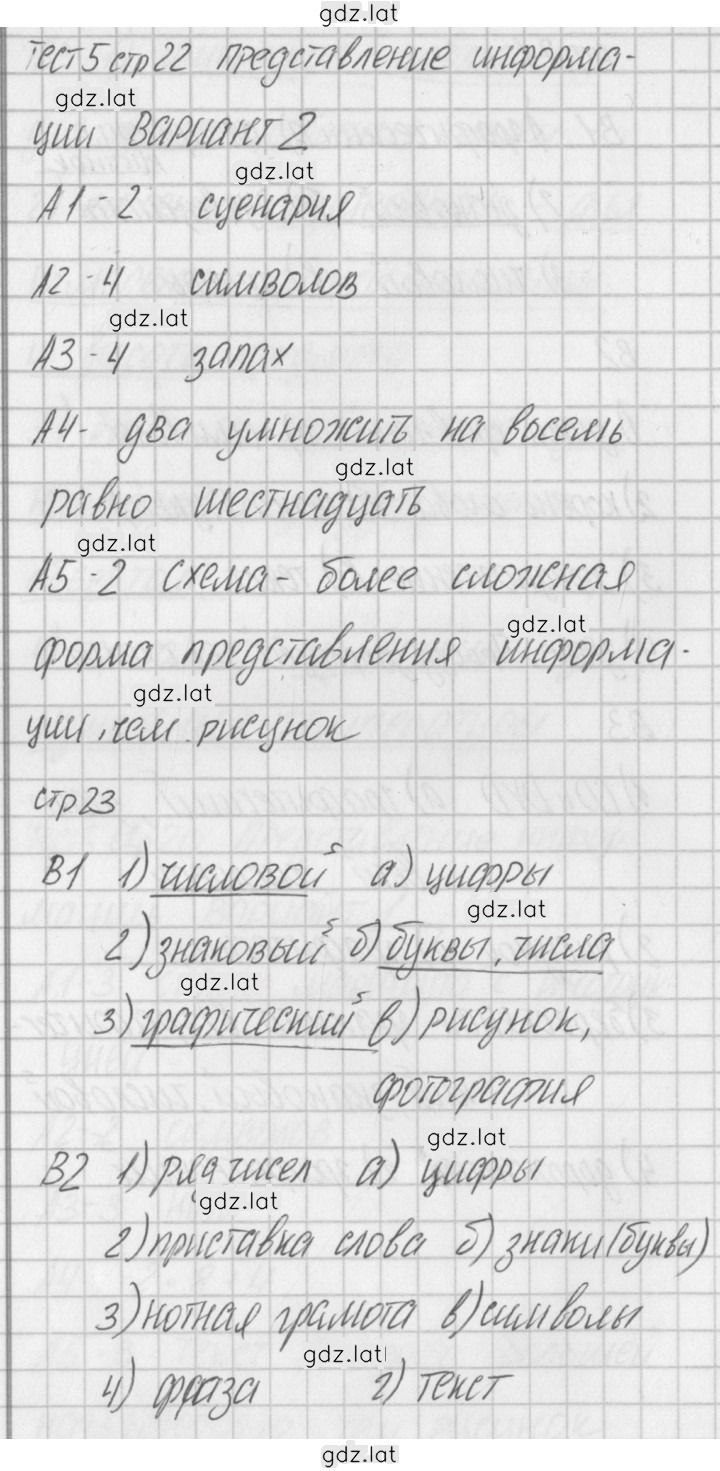 gdz.lat
Тест 5 стр 22 представление информа-
gdz.lat
ции вариант 2
gdz.lat
А1-2 сценария
А2-4 символов
gdz.lat
А3-4 запах
А4- два умножить на восемь
gdz.lat
равно шестнадцать
gdz.lat
А5-2 схема- более сложная
gdz.lat
форма представления информа-
gdz.lat
ции, чем рисунок
стр 23
В1 1) числовой а) цифры
gdz.lat
2) знаковый б) буквы, числа
gdz.lat
3) графический в) рисунок,
фотография
gdz.lat
В2 1) ряд чисел а) цифры
gdz.lat
2) приставка слова б) знаки (буквы)
3) нотная грамота в) символы
gdz.lat
4) фраза г) текст
gdz.lat